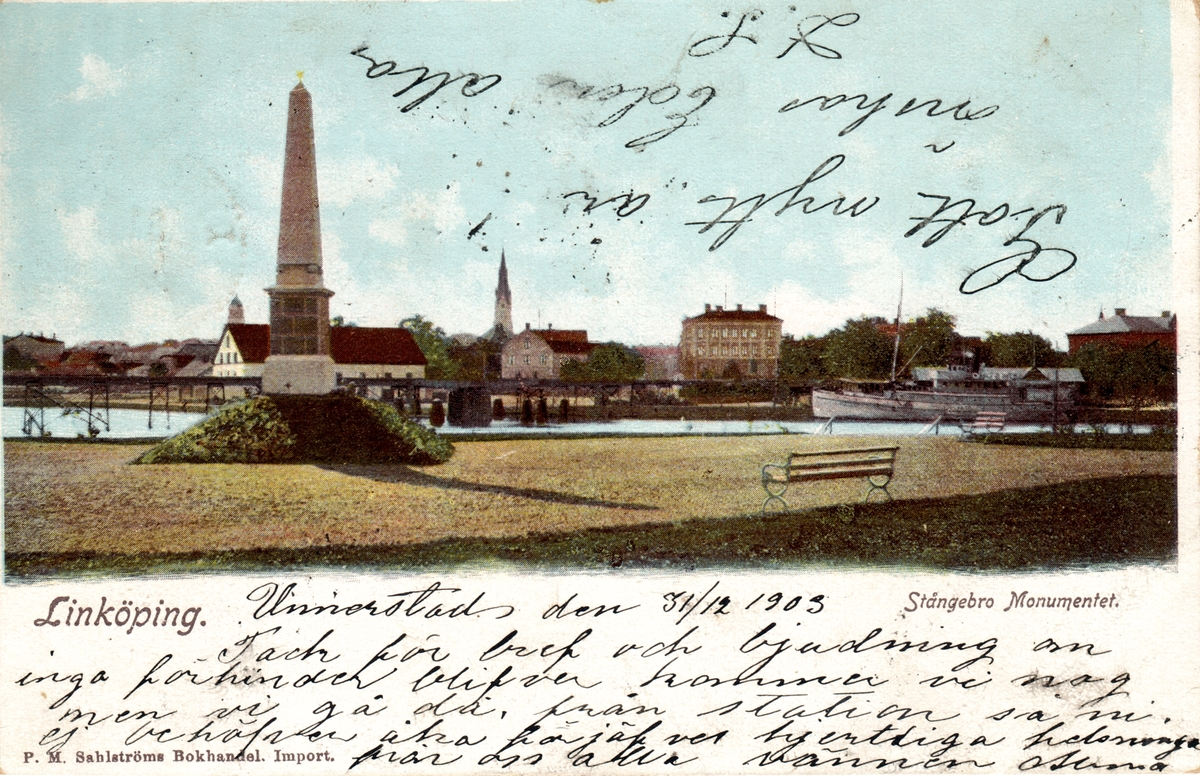 Godt nytt år
önskas Eder alla
F. S.
Linköping.
Stångebro Monumentet.
Vimerstads den 31/12 1903
Tack för bref och bjudning om
inga förhinder blifver kommer vi nog
men vi gå då, från station så ni.
ej behöfver åka för jäk vet hjertliga helsninga
från oss alla vännen
P. M. Sahlströms Bokhandel. Import.